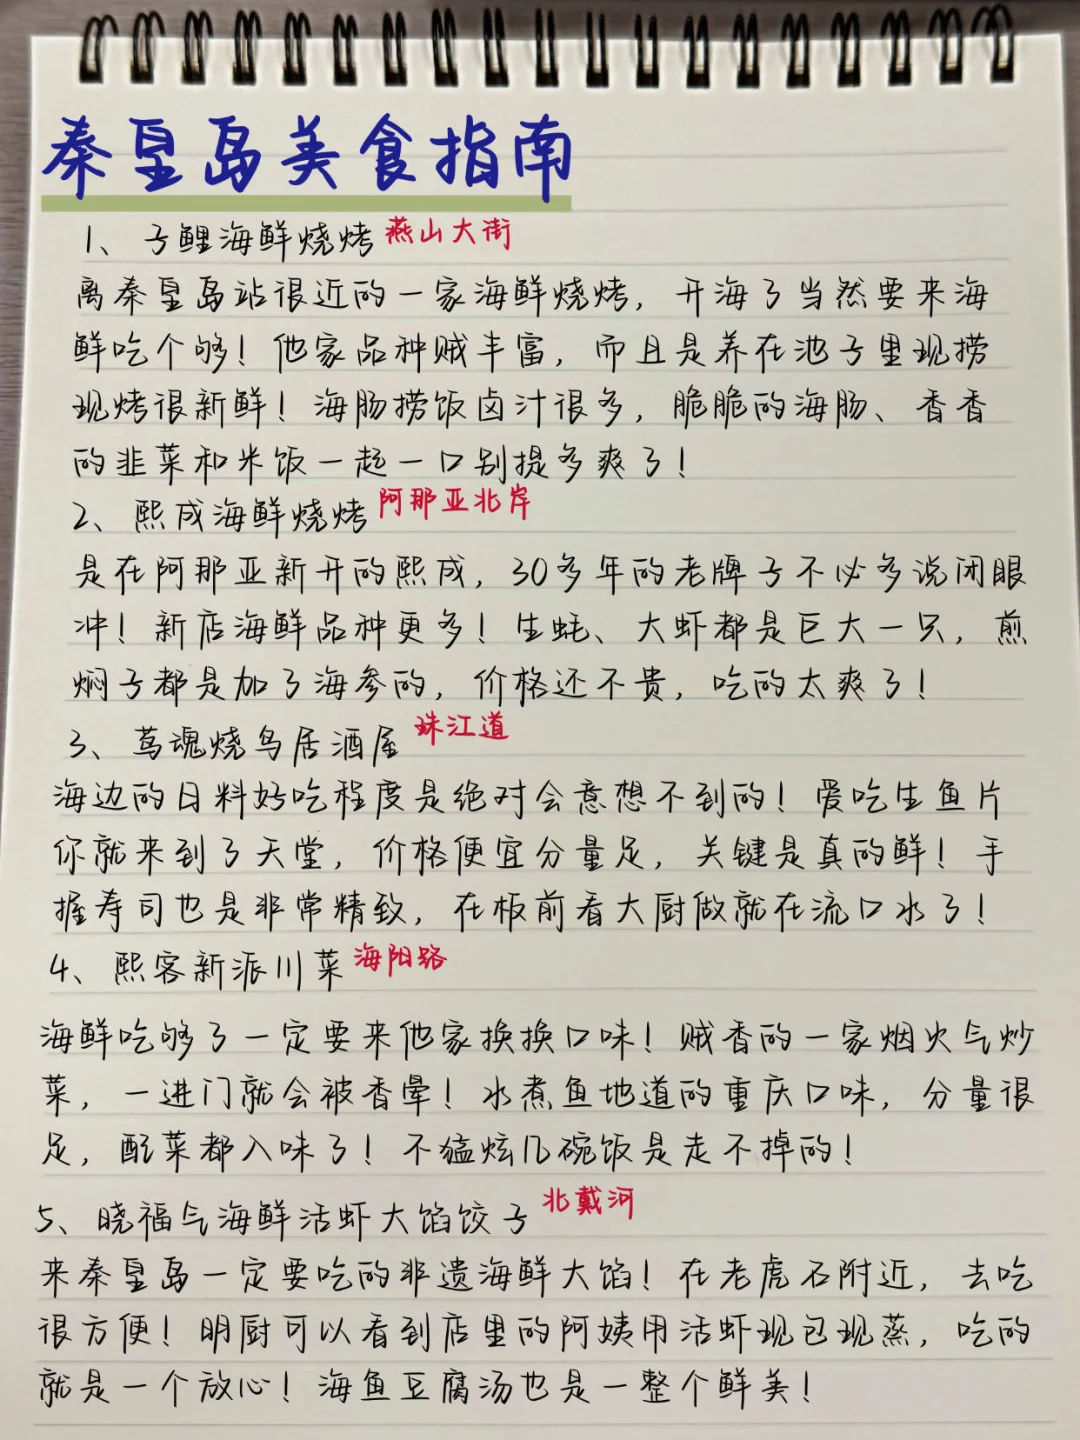 秦皇岛美食指南
1、子鲤海鲜烧烤 燕山大街
离秦皇岛站很近的一家海鲜烧烤，开海了当然要来海
鲜吃个够！他家品种贼丰富，而且是养在池子里现捞
现烤很新鲜！海肠捞饭卤汁很多，脆脆的海肠、香香
的韭菜和米饭一起一口别提多爽了！
2、熙成海鲜烧烤 阿那亚北岸
是在阿那亚新开的熙成，30多年的老牌子不必多说闭眼
冲！新店海鲜品种更多！生蚝、大虾都是巨大一只，煎
焖子都是加了海参的，价格还不贵，吃的太爽了！
3、茑魂烧鸟居酒屋 珠江道
海边的日料好吃程度是绝对会意想不到的！爱吃生鱼片
你就来到了天堂，价格便宜分量足，关键是真的鲜！手
握寿司也是非常精致，在板前看大厨做就在流口水了！
4、熙客新派川菜 海阳路
海鲜吃够了一定要来他家换换口味！贼香的一家烟火气炒
菜，一进门就会被香晕！水煮鱼地道的重庆口味，分量很
足，配菜都入味了！不猛炫几碗饭是走不掉的！
5、晓福气海鲜活虾大馅饺子 北戴河
来秦皇岛一定要吃的非遗海鲜大馅！在老虎石附近，去吃
很方便！明厨可以看到店里的阿姨用活虾现包现蒸，吃的
就是一个放心！海鱼豆腐汤也是一整个鲜美！